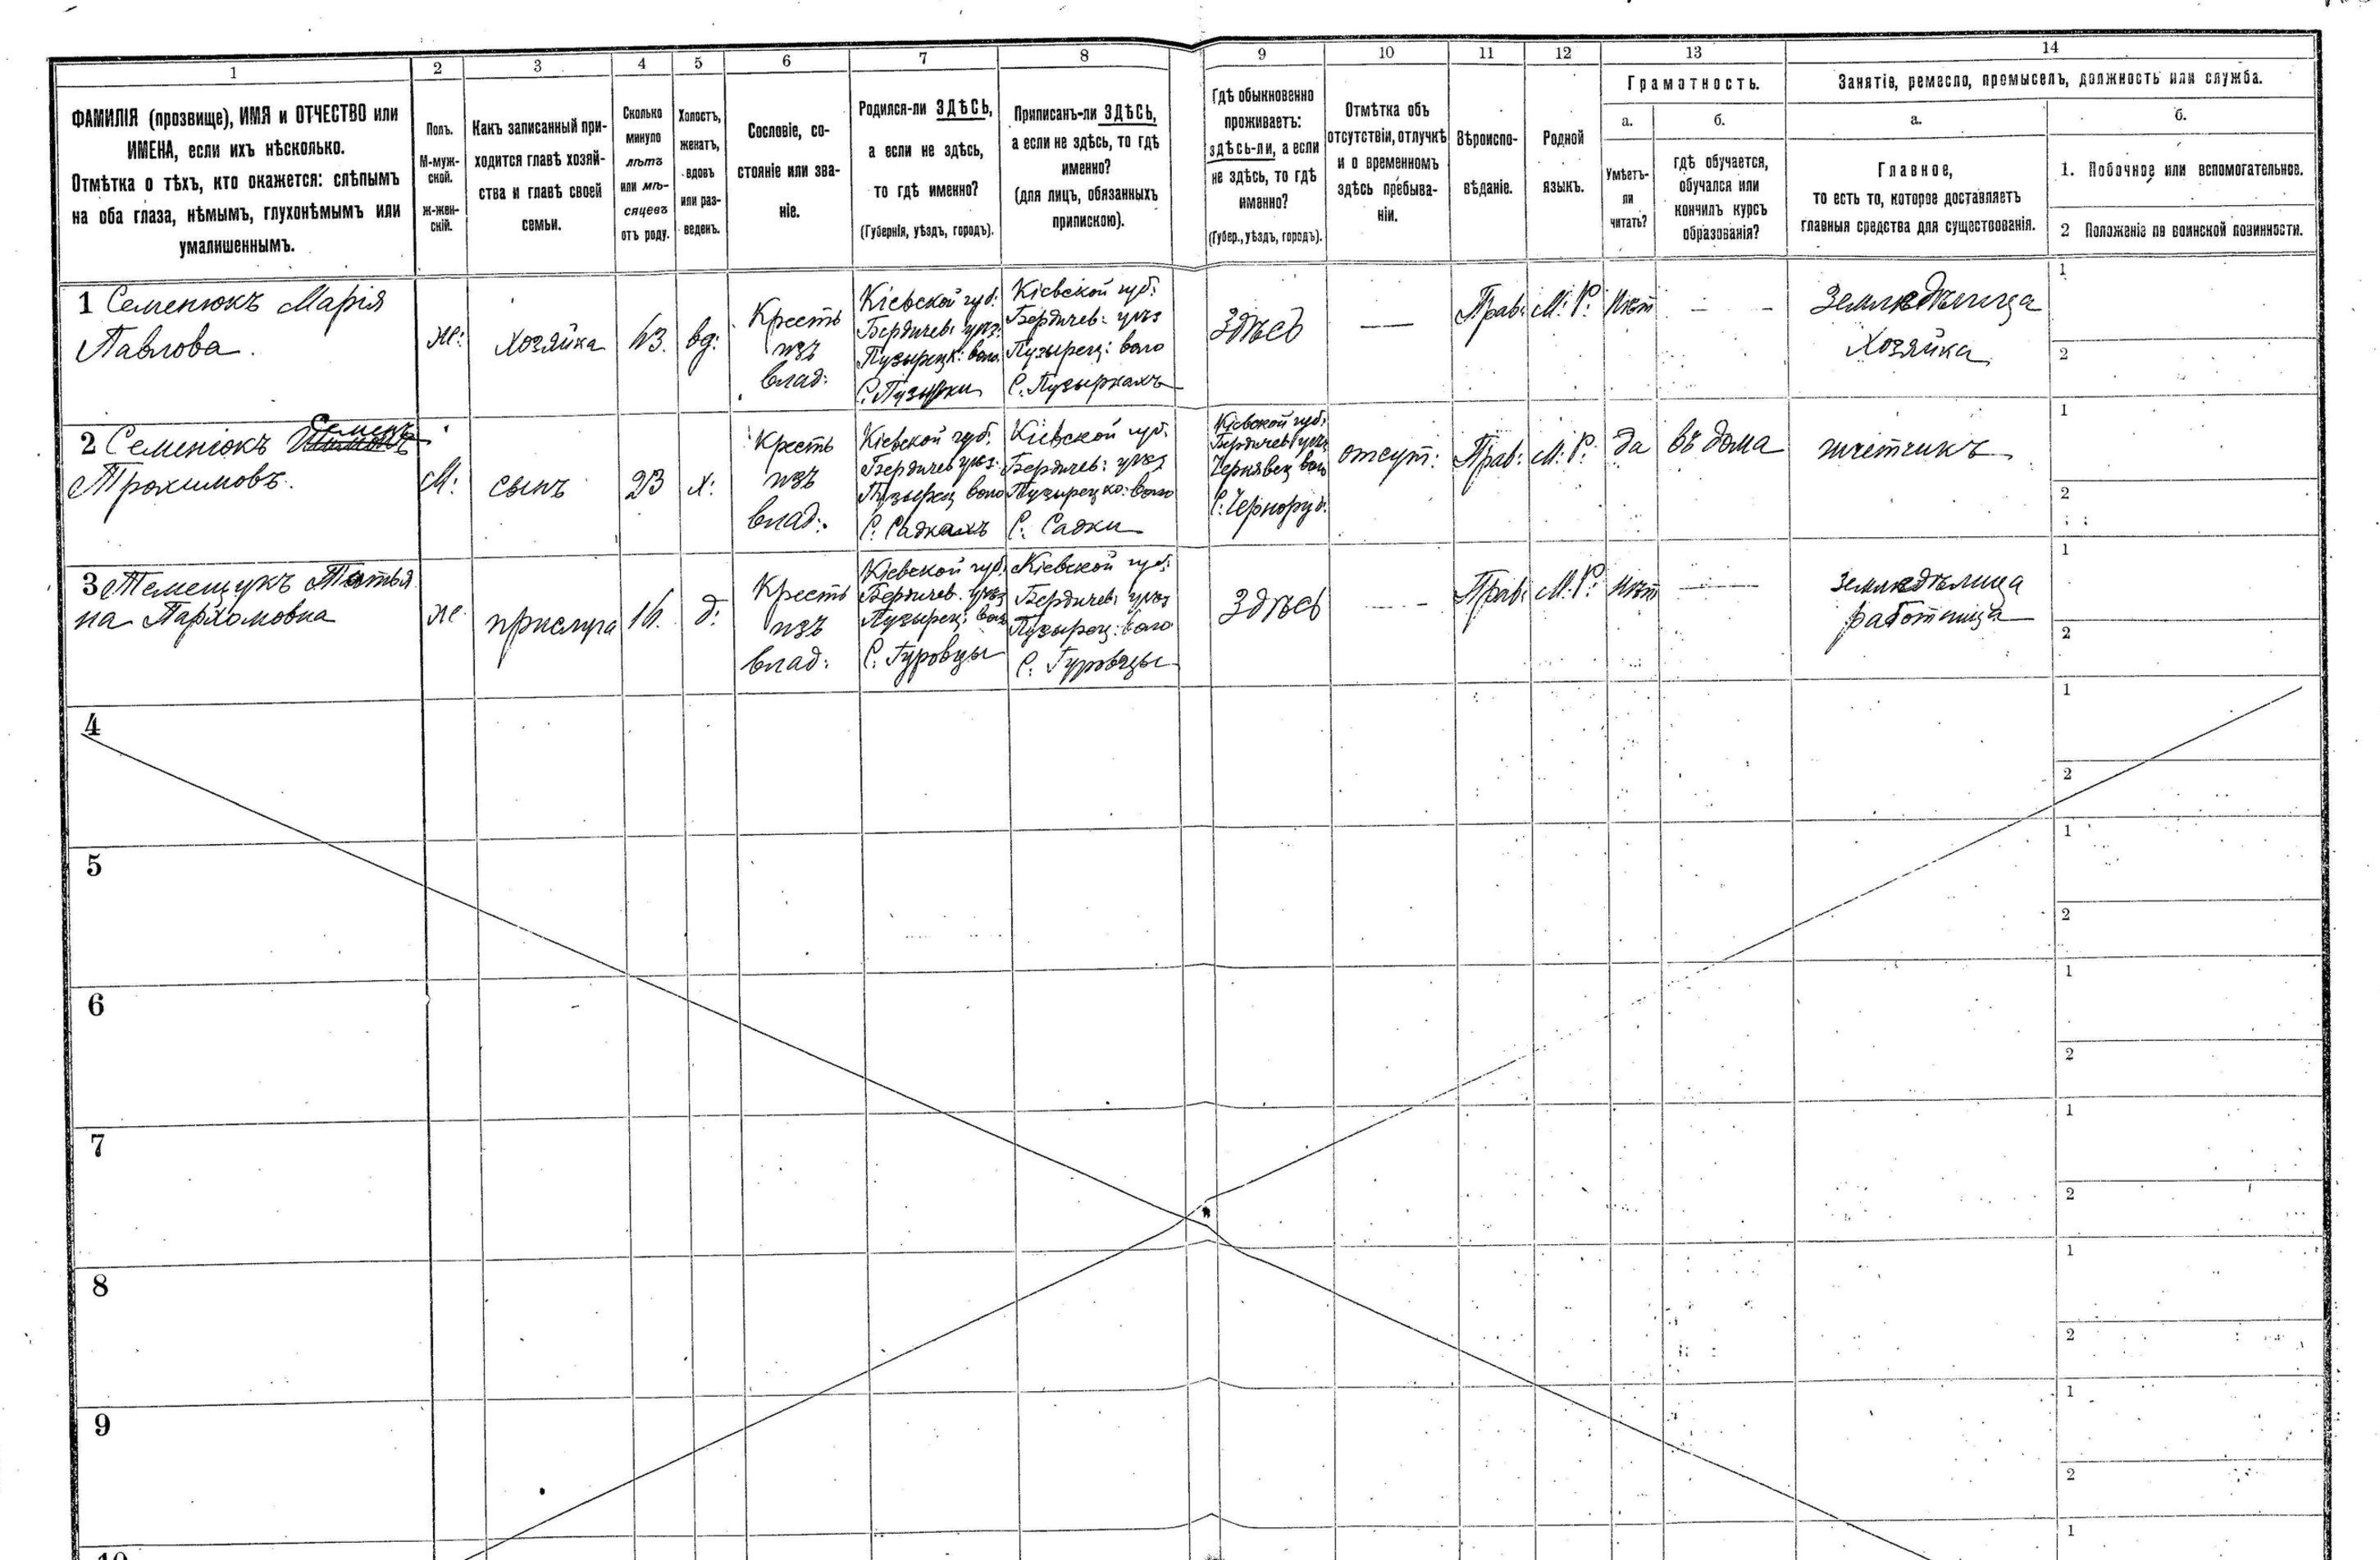 1 2 3 4 5 6 7 8 9 10 11 12 13 14
ФАМИЛІЯ (прозвище), ИМЯ и ОТЧЕСТВО или
ИМЕНА, если ихъ нѣсколько.
Отмѣтка о тѣхъ, кто окажется: слѣпымъ
на оба глаза, нѣмымъ, глухонѣмымъ или
умалишеннымъ.
Полъ.
М-муж-
ской.
Ж-жен-
скій.
Какъ записанный при-
ходится главѣ хозяй-
ства и главѣ своей
семьи.
Сколько
минуло
лѣтъ
или мѣ-
сяцевъ
отъ роду.
Холостъ,
женатъ,
вдовъ
или раз-
веденъ.
Сословіе, со-
стояніе или зва-
ніе.
Родился-ли ЗДѢСЬ,
а если не здѣсь,
то гдѣ именно?
(Губернія, уѣздъ, городъ).
Приписанъ-ли ЗДѢСЬ,
а если не здѣсь, то гдѣ
именно?
(для лицъ, обязанныхъ
припискою).
Гдѣ обыкновенно
проживаетъ:
здѣсь-ли, а если
не здѣсь, то гдѣ
именно?
(Губер., уѣздъ, городъ).
Отмѣтка объ
отсутствіи, отлучкѣ
и о временномъ
здѣсь пребыва-
ніи.
Вѣроиспо-
вѣданіе.
Родной
языкъ.
Грамотность.
а.
Умѣетъ-
ли
читать?
б.
гдѣ обучается,
обучался или
кончилъ курсъ
образованія?
Занятіе, ремесло, промыселъ, должность или служба.
а.
Главное,
то есть то, которое доставляетъ
главныя средства для существованія.
б.
1. Побочное или вспомогательное.
2 Положеніе по воинской повинности.
1 Семенюкъ Марія
Павлова.
же:
Хозяйка
43.
вд:
Кресть
изъ
влад:
Кіевской губ:
Бердичев: уѣз:
Пузырецк: воло.
С. Пузырки
Кіевской губ:
Бердичев: уѣз
Пузырец: воло
С. Пузыркахъ
Здѣсь
—
Прав:
М: Р:
Нѣт
— —
Земледѣлица
Хозяйка
1
2
2 Семенюкъ Семенъ
Трохимовъ.
М:
сынъ
23
х:
Кресть
изъ
влад:
Кіевской губ:
Бердичев уѣз:
Пузырец воло
С. Садкахъ
Кіевской губ.
Бердичев: уѣз
Пузырецко: воло
С. Садки
Кіевской губ:
Бердичев: уѣз
Чернявец воло
С. Черноруд:
отсут:
Прав:
М: Р:
да
въ дома
1
2
3 Темещукъ Татья
на Пархомовна
же
прислуга
16.
д:
Кресть
изъ
влад:
Кіевской губ.
Бердичев. уѣз
Пузырец: воло
С. Гуровцы
Кіевской губ:
Бердичев: уѣз
Пузырец: воло
С. Гуровцы
Здѣсь
—
Прав:
М: Р:
Нѣт
—
Земледѣлица
работница
1
2
4
1
2
5
1
2
6
1
2
7
1
2
8
1
2
9
1
2
10
1